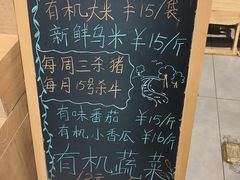 有机大米 ¥15/袋
新鲜乌米 ¥15/斤
每周三杀猪
每月15号杀牛
有味番茄 ¥15/斤
有机小香瓜 ¥16/斤
有机蔬菜